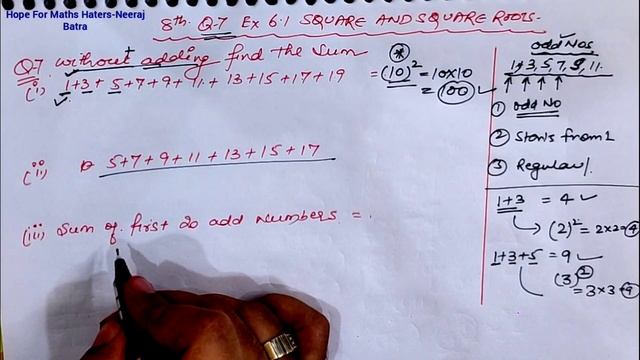 Hope For Maths Haters-Neeraj
Batra
8th. Q-7 Ex 6.1 SQUARE AND SQUARE Roots.
Q7 without adding find the Sum
(i) 1+3+5+7+9+11+13+15+17+19 = (10)² = 10×10
= 100
(ii) 5+7+9+11+13+15+17
(iii) Sum of first 20 add Numbers =
odd Nos
1, 3, 5, 7, 9, 11.
① odd No
② Starts from 1
③ Regular
1+3 = 4 ✓
(2)² = 2×2 = 4
1+3+5 = 9 ✓
(3)² = 3×3 = 9